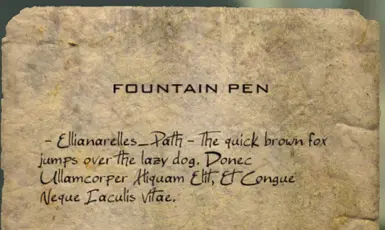 FOUNTAIN PEN
- Ellianarelles_Path - The quick brown fox
jumps over the lazy dog. Donec
Ullamcorper Aliquam Elit, Et Congue
Neque Iaculis Vitae.